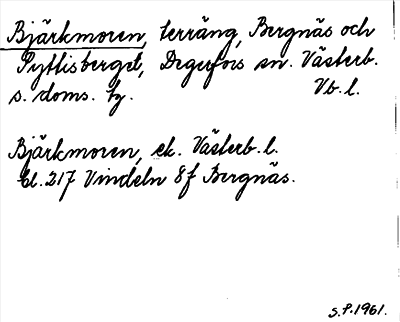 Bjärkmoren, terräng, Bergnäs och
Pyttisberget, Degerfors sn. Västerb.
s. doms. tg. Vb. l.
Bjärkmoren, ek. Västerb. l.
bl. 217 Vindeln 8f Bergnäs.
S.P. 1961.